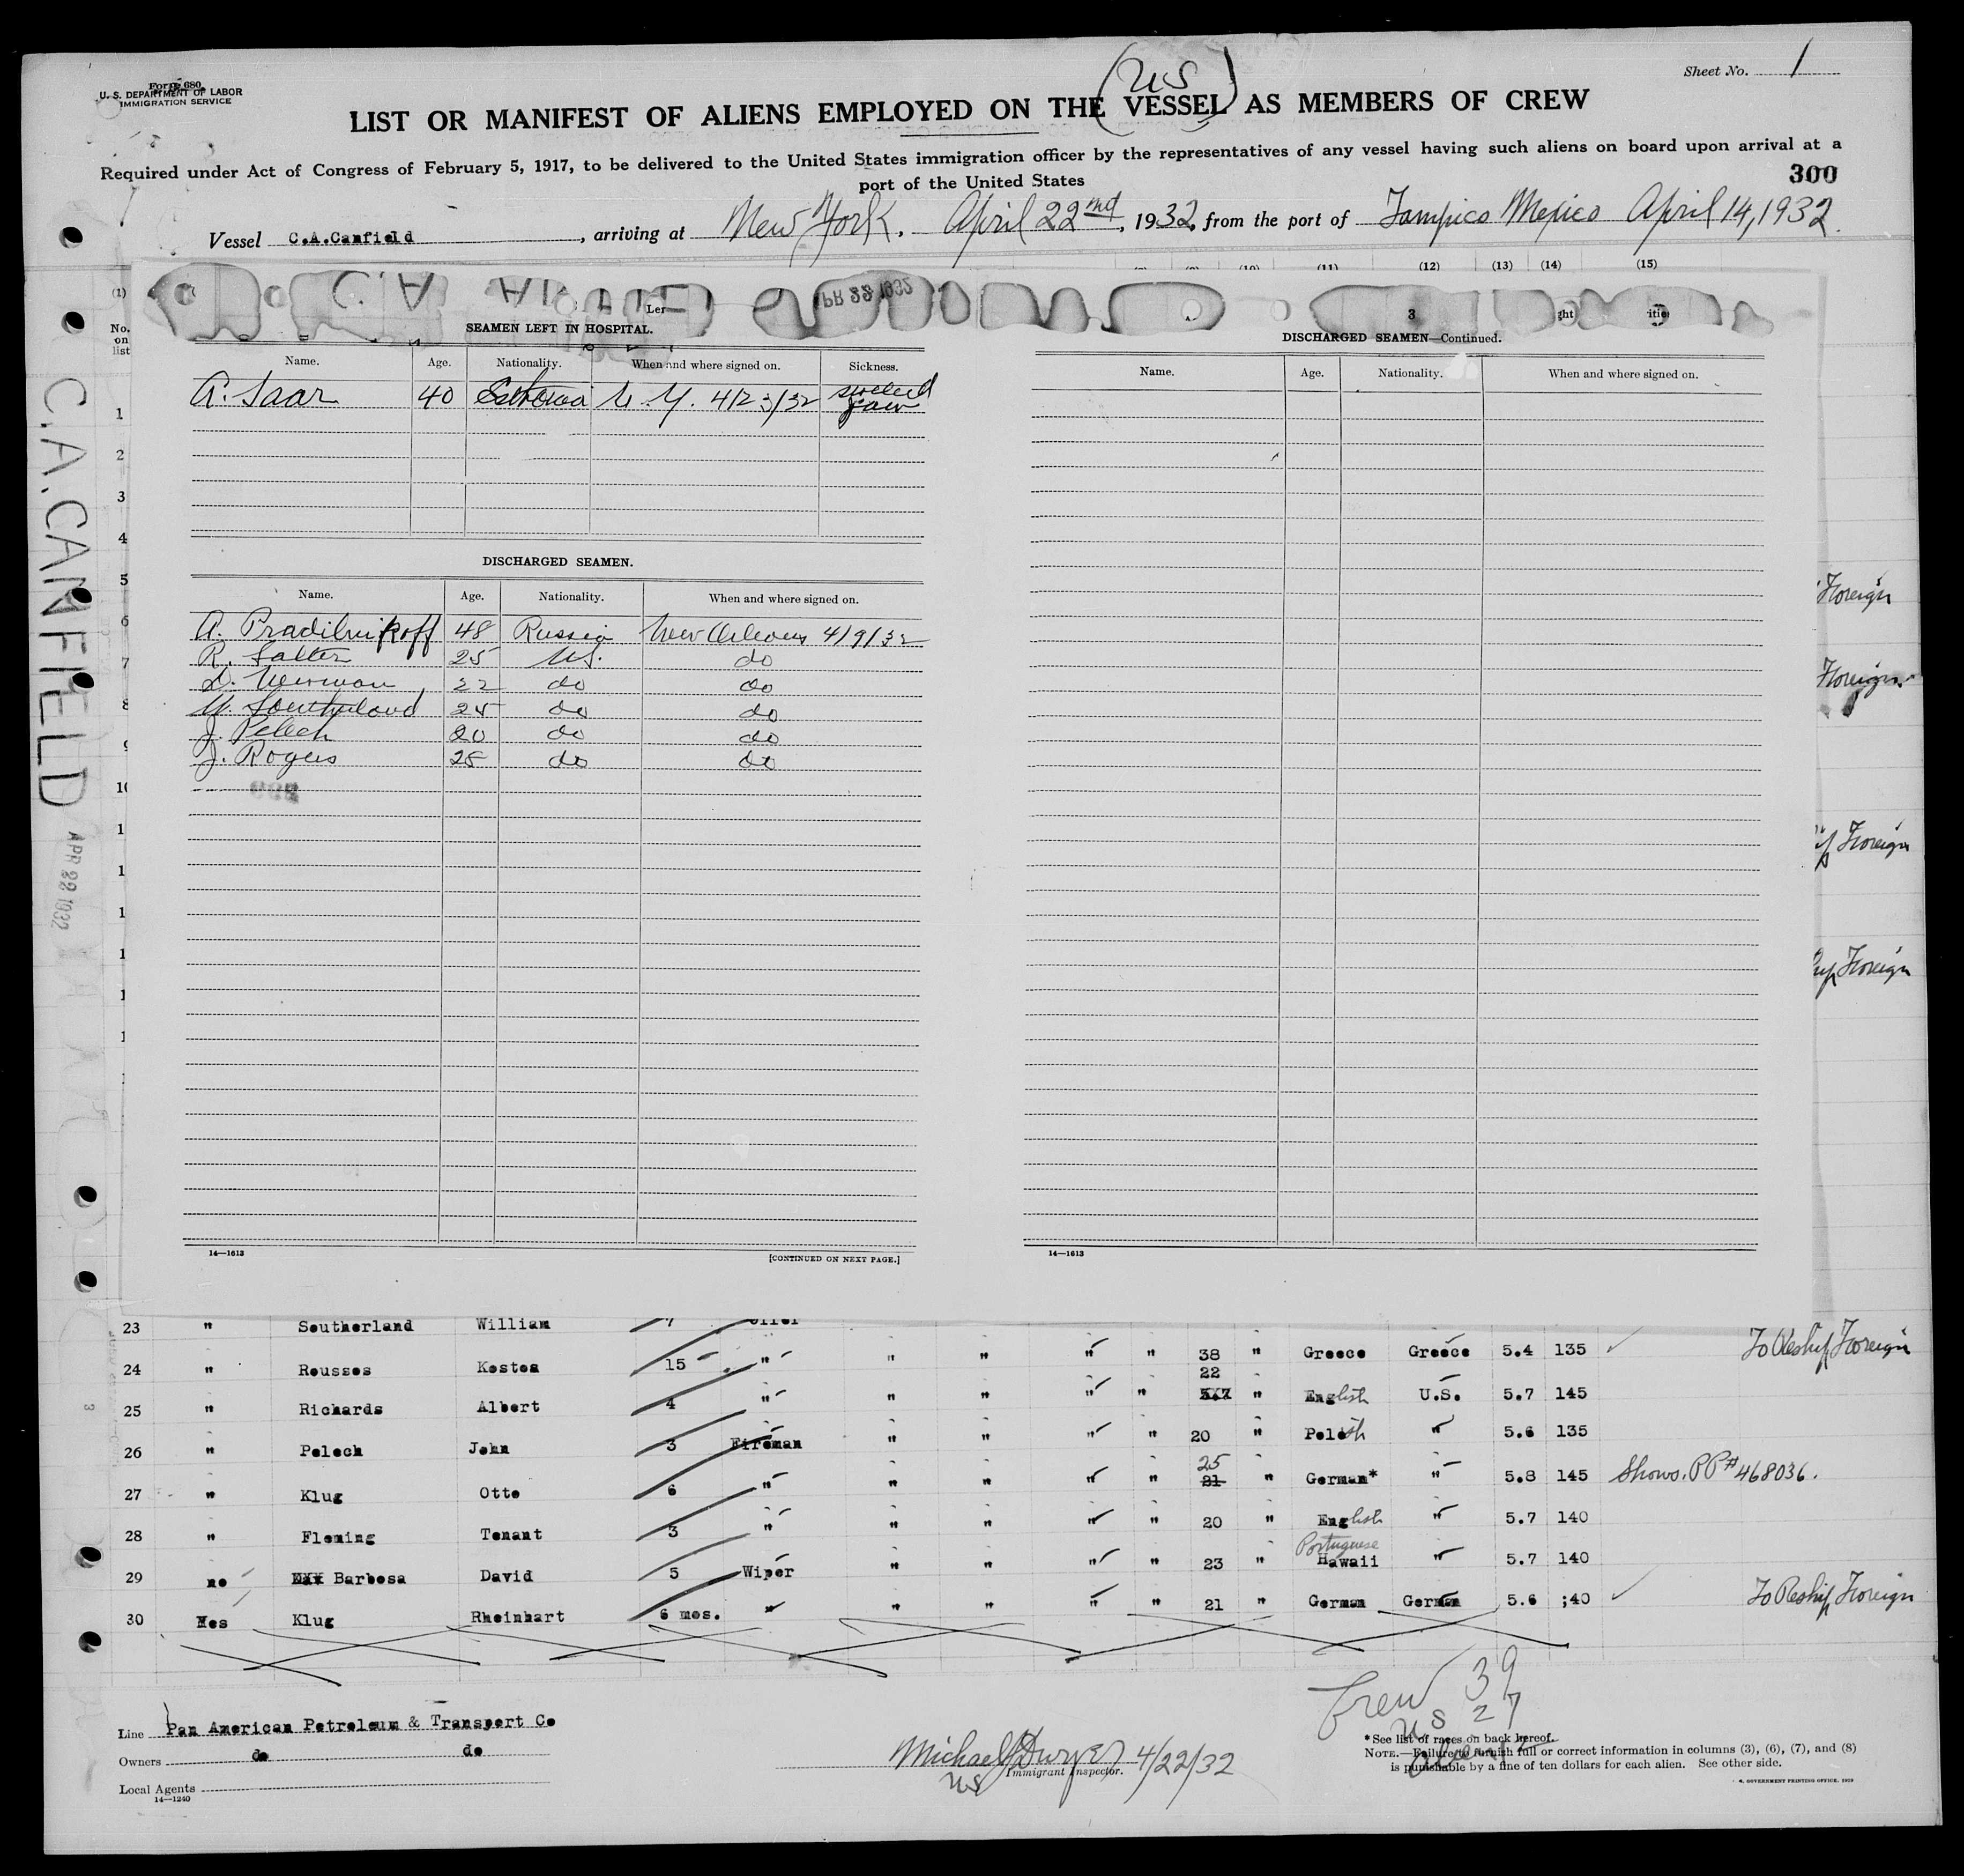 Form 680
U. S. DEPARTMENT OF LABOR
IMMIGRATION SERVICE
Sheet No. 1
(US)
LIST OR MANIFEST OF ALIENS EMPLOYED ON THE VESSEL AS MEMBERS OF CREW
Required under Act of Congress of February 5, 1917, to be delivered to the United States immigration officer by the representatives of any vessel having such aliens on board upon arrival at a
port of the United States
300
Vessel C.A.Canfield, arriving at New York, April 22nd, 1932, from the port of Tampico Mexico April 14, 1932.
(11) (12) (13) (14) (15)
(1)
No. on list
C.A. CANFIELD
APR 22 1932
SEAMEN LEFT IN HOSPITAL.
Name. Age. Nationality. When and where signed on. Sickness.
A. Saar 40 Esthonia N. Y. 4/23/32 swelled jaw
DISCHARGED SEAMEN.
Name. Age. Nationality. When and where signed on.
A. Pradilnikoff 48 Russia New Orleans 4/9/32
R. Salter 25 US. do
D. Newman 22 do do
W. Southerland 25 do do
J. Pelech 20 do do
J. Rogers 28 do do
14—1613 [CONTINUED ON NEXT PAGE.]
DISCHARGED SEAMEN—Continued.
Name. Age. Nationality. When and where signed on.
14—1613
1
2
3
4
5
6
7
8
9
Foreign
Foreign
Foreign
Foreign
23 " Southerland William 7
24 " Rousses Kostea 15 " " " " " 38 " Greece Greece 5.4 135 To Reship Foreign
25 " Richards Albert 4 " " " " " 22 " English U.S. 5.7 145
26 " Pelech John 3 Fireman " " " " 20 " Polish " 5.6 135
27 " Klug Otto 6 " " " " " 25 21 " German* " 5.8 145 Shows. PP# 468036.
28 " Fleming Tenant 3 " " " " " 20 " English " 5.7 140
29 no Barbosa David 5 Wiper " " " " 23 " Portuguese Hawaii " 5.7 140
30 Klug Rheinhart 6 mos. " " " " " 21 " German German 5.6 ;40 To Reship Foreign
Crew 39
US 27
Alien 12
Line Pan American Petroleum & Transport Co
Owners do do
Local Agents
14—1240
Michael J Dwyer 4/22/32
US
Immigrant Inspector.
*See list of races on back hereof.
NOTE.—Failure to furnish full or correct information in columns (3), (6), (7), and (8)
is punishable by a fine of ten dollars for each alien. See other side.
GOVERNMENT PRINTING OFFICE.